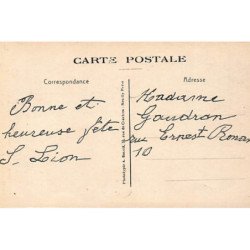 CARTE POSTALE
Correspondance
Adresse
Bonne et
heureuse fête
S. Lion
Madame
Gaudron
rue Ernest Renan
10